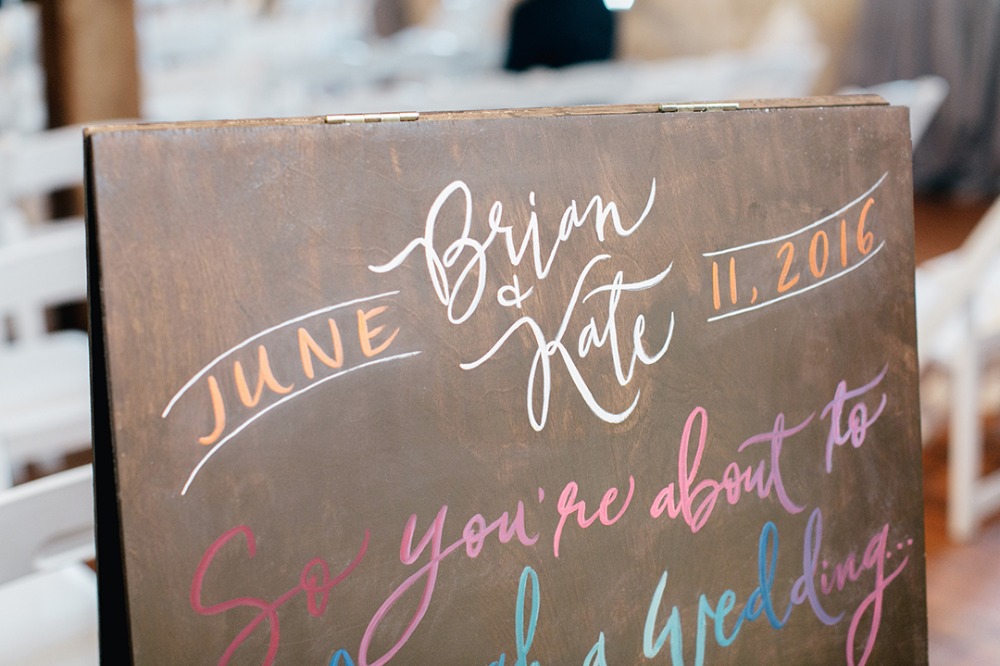 Brian
&
Kate
JUNE 11, 2016
So you're about to
a wedding...